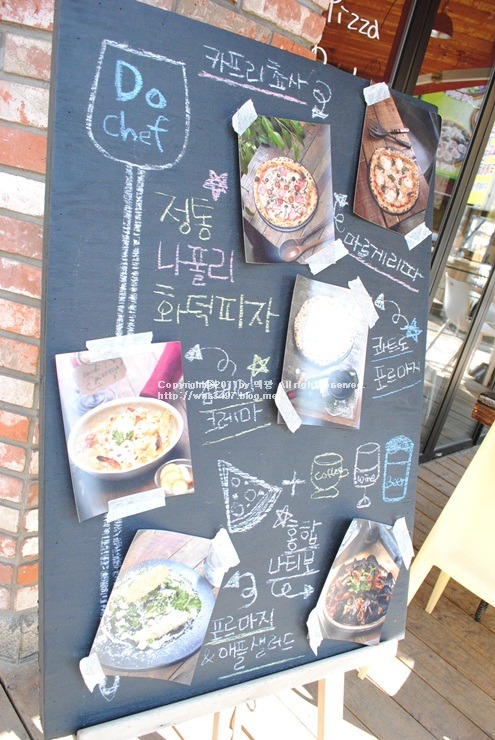 Pizza
Do
chef
카프리쵸사
정통
나폴리
화덕피자
마르게리따
콰트로
포르마지
크레마
Copyright ⓒ 2011 by. 떡꽁 All rights reserved.
http://wns3497.blog.me
+ coffee wine beer
홍합
나티보
포르마지
& 애플샐러드